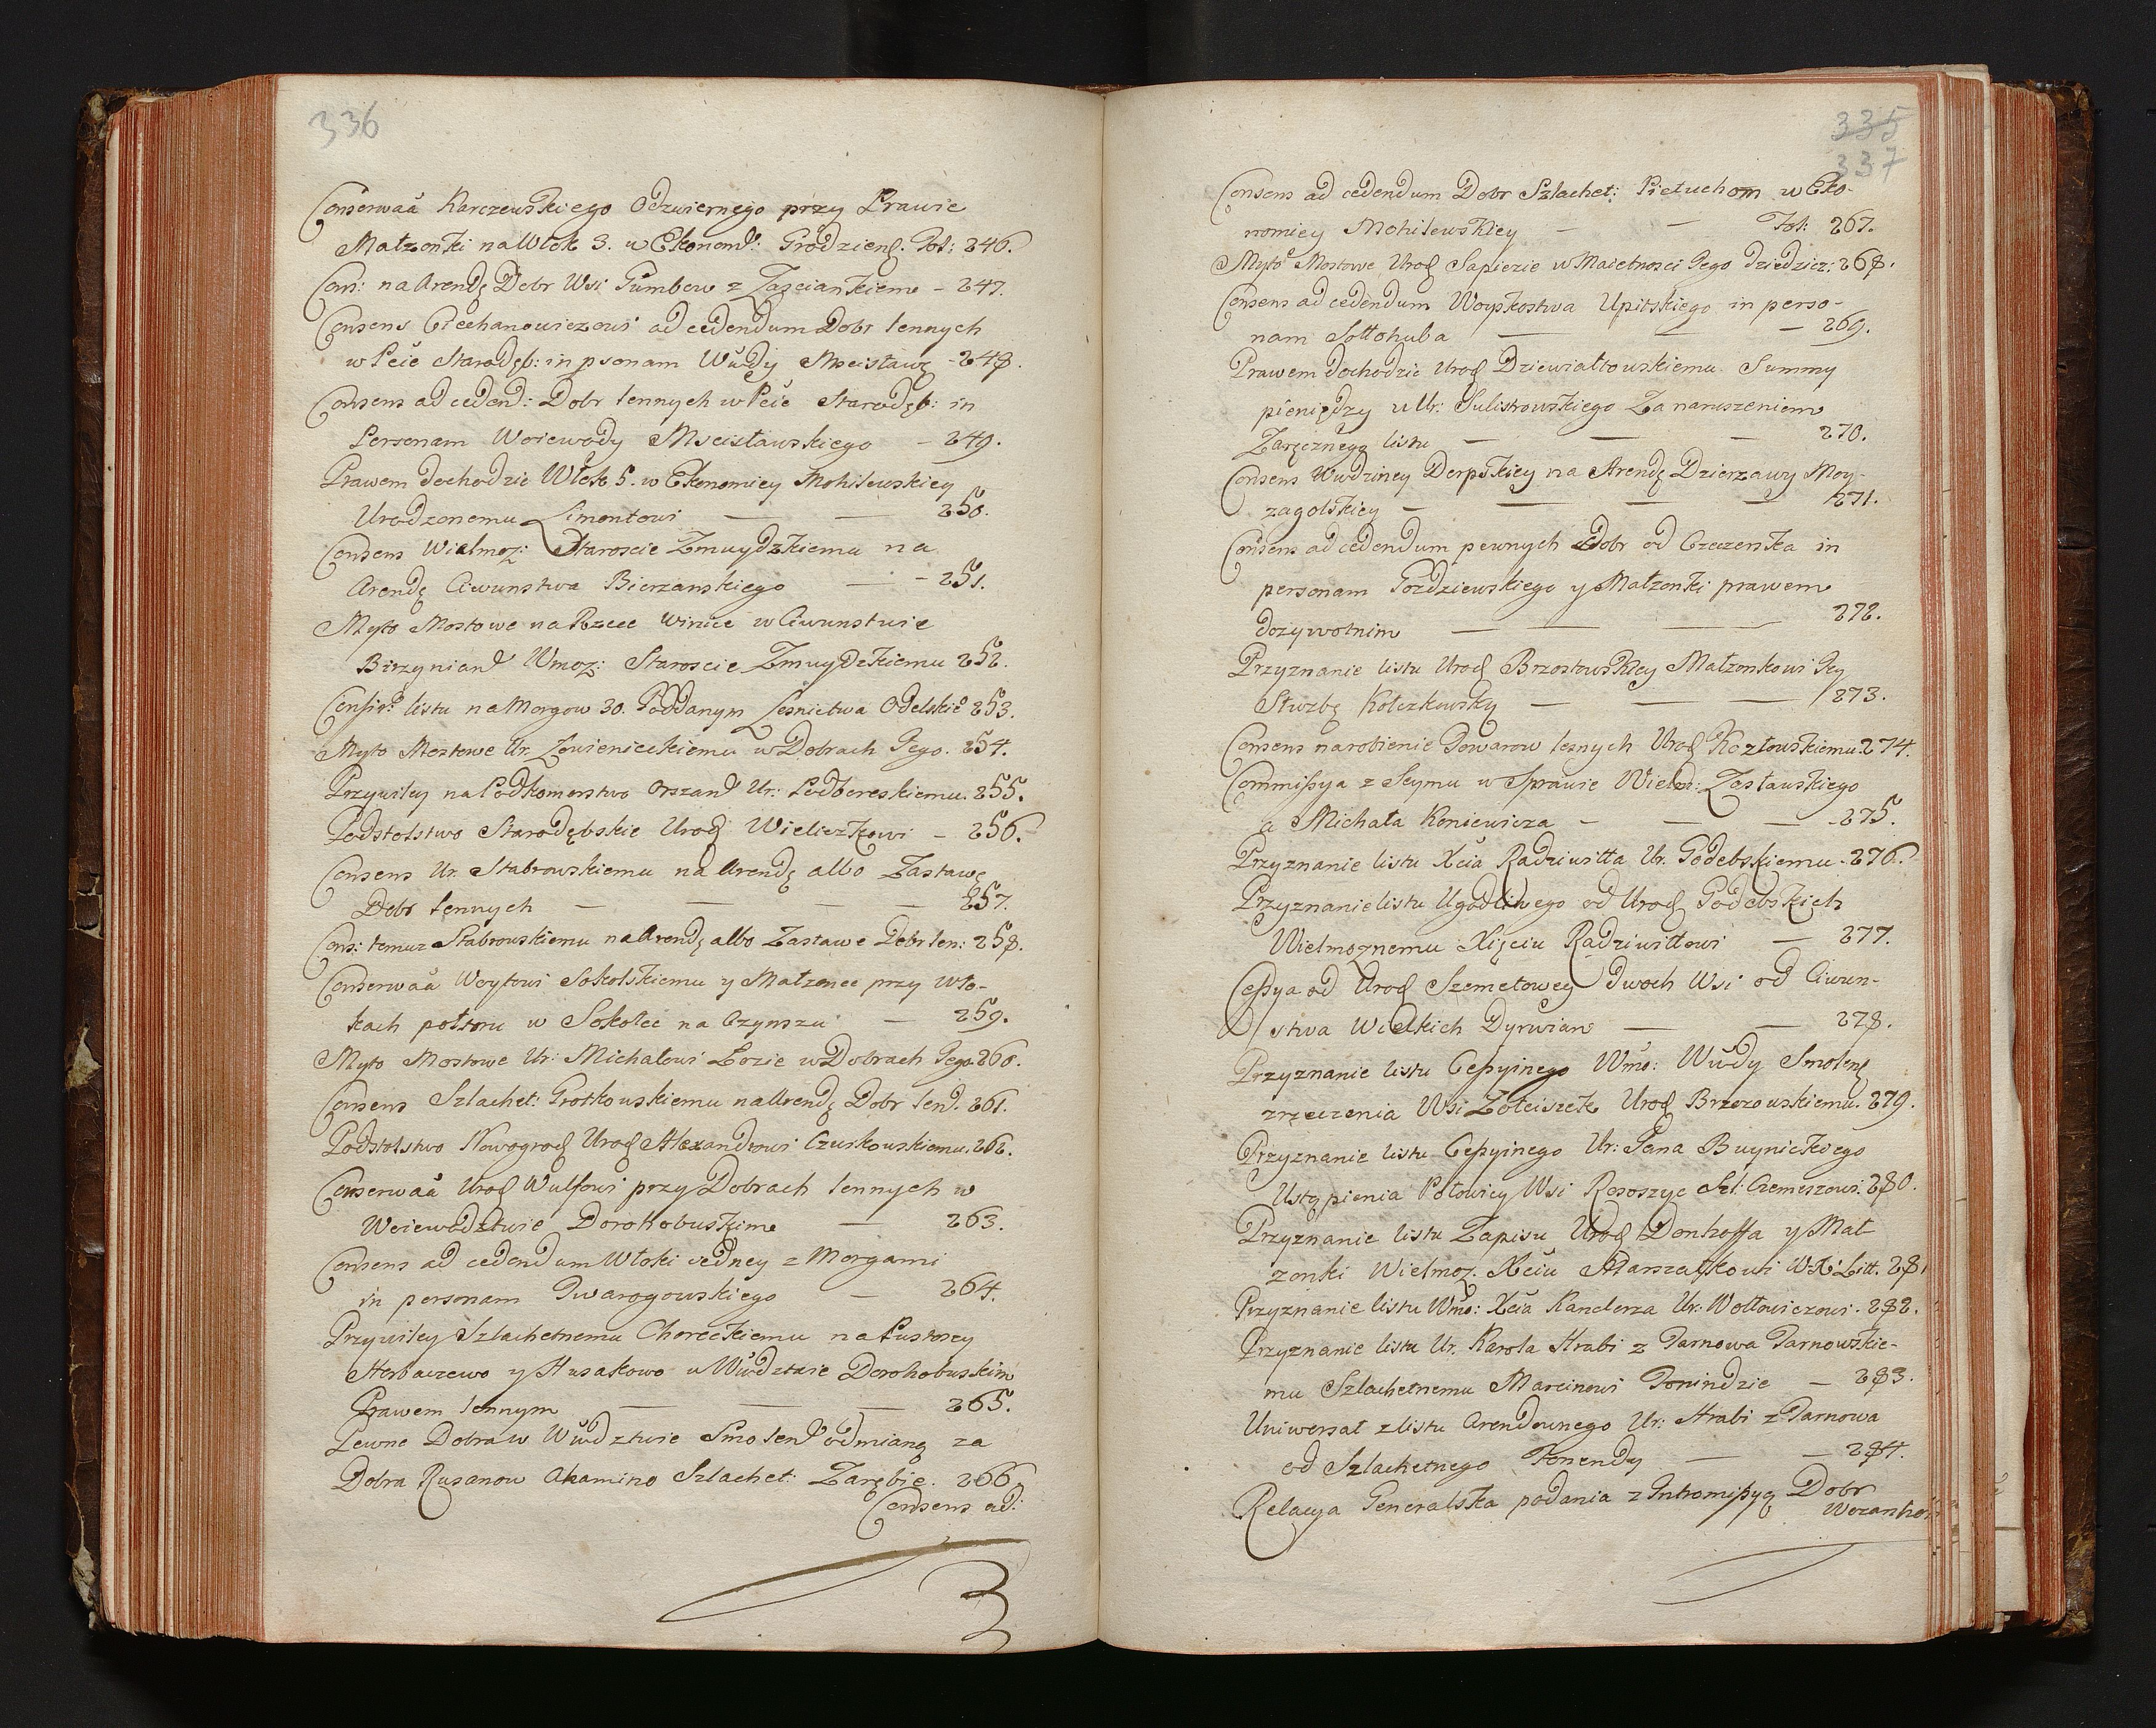 336
Conserwaã Karczewskiego Odzwiernego przy Prawie
Małzonki na Włok 3. w Ekonom: Grodzien. Fol: 246.
Cons: na Arendę Dobr Wsi Gumbow z Zasciankiem - 247.
Consens Ciechanowiczowi ad cedendum Dobr lennych
w Pcie Starodęb: in psonam Wwdy Mscisław - 248.
Consens ad cedend: Dobr lennych w Pcie Starodęb: in
Personam Woiewody Mscisławskiego - 249.
Prawem dochodzie Włok 5. w Ekonomiey Mohilewskiey
Urodzonemu Limontowi — — 250.
Consens Wielmoz: Staroscie Zmuydzkiemu na
Arendę Ciwunstwa Bierzanskiego — - 251.
Myto Mostowe na Rzece Wince w Ciwunstwie
Birzynian Wmoz: Staroscie Zmuydzkiemu 252.
listu na Morgow 30. Poddanym Lesnictwa Odelskie 253.
Myto Mostowe Ur. Zowienieckiemu w Dobrach Jego. 254.
Przywiley na Podkomorstwo Orszan Ur: Podbereskiemu. 255.
Podstolstwo Starodębskie Urod Wieliczkowi - 256.
Consens Ur. Stabrowskiemu na Arendę albo Zastawę
Dobr lennych — — — — 257.
Cons: temuz Stabrowskiemu na Arendę albo Zastawe Dobr len: 258.
Conserwaã Woytowi Sokolskiemu y Małzonce przy Wło-
kach połtoru w Sokolce na Czynszu — 259.
Myto Mostowe Ur: Michałowi Łozie w Dobrach Jego 260.
Consens Szlachet: Grotkowskiemu na Arendę Dobr len. 261.
Podstolstwo Nowogrod Urod Alexandrowi Czurkowskiemu. 262.
Conserwaã Urod Wulfowi przy Dobrach lennych w
Woiewodztwie Dorohobuskim — 263.
Consens ad cedendum Włoki iedney z Morgami
in personam Twarogowskiego — 264.
Przywiley Szlachetnemu Choreckiemu na Pustoszy
Horbaczewo y Husakowo w Wwdztwie Dorohobuskim
Prawem lennym — — — 265.
Pewne Dobra w Wwdztwie Smolen odmianą za
Dobra Rusanow Akamino Szlachet: Zarębie. 266
Consens ad:
335
337
Consens ad cedendum Dobr Szlachet: Pietuchom w Eko-
nomiey Mohilewskiey — — Fol: 267.
Myto Mostowe Urod Sapiezie w Maietnosci Jego dziedzicz: 268.
Consens ad cedendum Woyskostwa Upitskiego in perso-
nam Sołłohuba — — — 269.
Prawem dochodzie Urod Dziewiałtowskiemu Summy
pieniędzy u Ur: Sulistrowskiego Za naruszeniem
Zaręcznego listu — — — 270.
Consens Wwdziney Derpskiey na Arendę Dzierzawy Moy-
zagolskiey — — — — 271.
Consens ad cedendum pewnych Dobr od Czeczenka in
personam Gozdziewskiego y Małzonki prawem
dozywotnim — — — 272.
Przyznanie listu Urod Brzostowskiey Małzonkowi Jey
Słuzbę Kołczkowsky — — — 273.
Consens na robienie Towarow lesnych Urod Kozłowskiemu. 274.
Commissya z Seymu w Sprawie Wielm: Zasławskiego
a Michała Koniewicza — — — 275.
Przyznanie listu Xcia Radziwiłła Ur. Godebskiemu - 276.
Przyznanie listu Ugodliwego od Urod Godebskich
Wielmoznemu Xięciu Radziwiłłowi — 277.
Cessya od Urod Szemetowey dwoch Wsi od Ciwun-
stwa Wielkich Dyrwian — — 278.
Przyznanie listu Cessyinego Wmo: Wwdy Smolen
zrzeczenia Wsi Zołciszek Urod Brzozowskiemu. 279.
Przyznanie listu Cessyinego Ur: Jana Buynickiego
Ustąpienia Połowicy Wsi Rososzyc Szl: Czemeszowi. 280.
Przyznanie listu Zapisu Urod Donhoffa y Mał
zonki Wielmoz. Xciu Marszałkowi W.X. Litt. 281
Przyznanie listu Wmo: Xcia Kanclerza Ur: Wołłowiczowi. 282.
Przyznanie listu Ur. Karola Hrabi z Tarnowa Tarnowskie-
mu Szlachetnemu Marcinowi Ponindzie — 283.
Uniwersał z listu Arendownego Ur: Hrabi z Tarnowa
od Szlachetnego Ponendy — — 284.
Relacya Generalska podania z Intromissyą Dobr